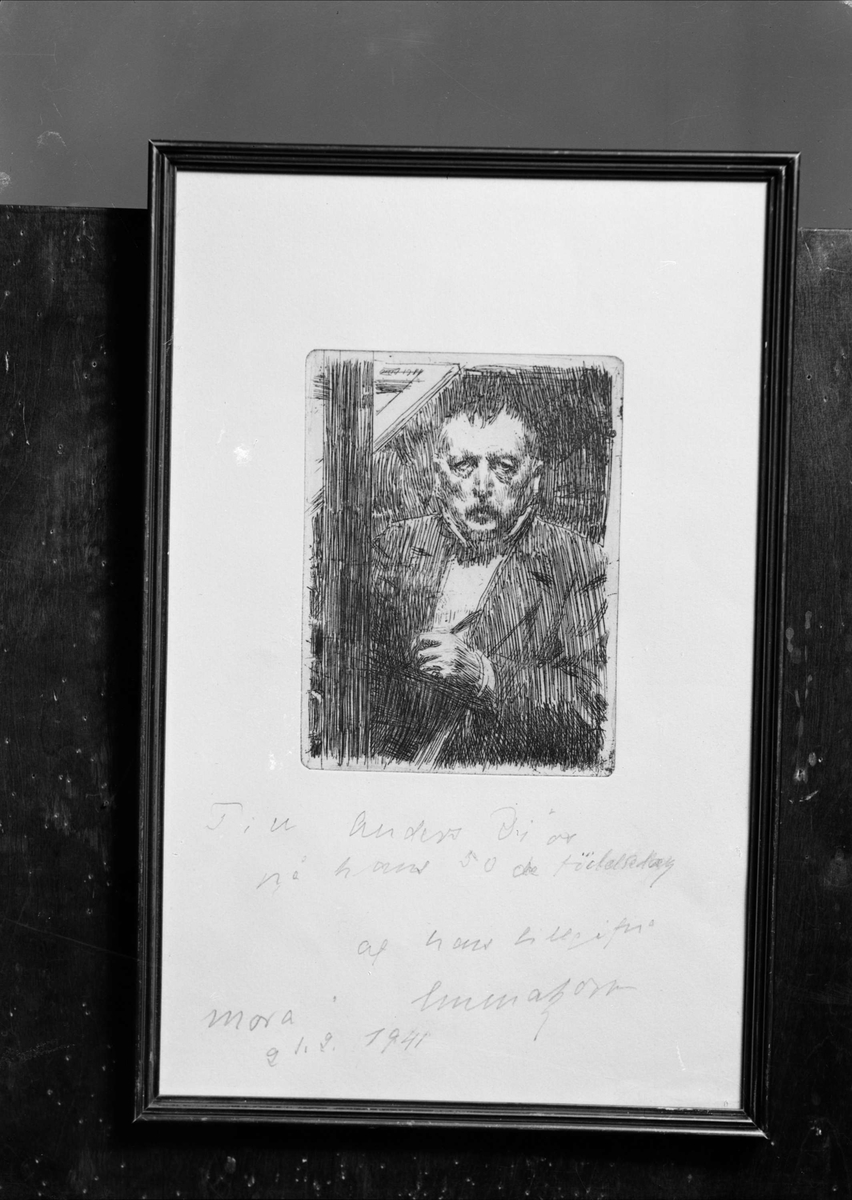 Till Anders Diös
på hans 50 de födelsedag
af hans
Emma Zorn
Mora
21.2. 1941